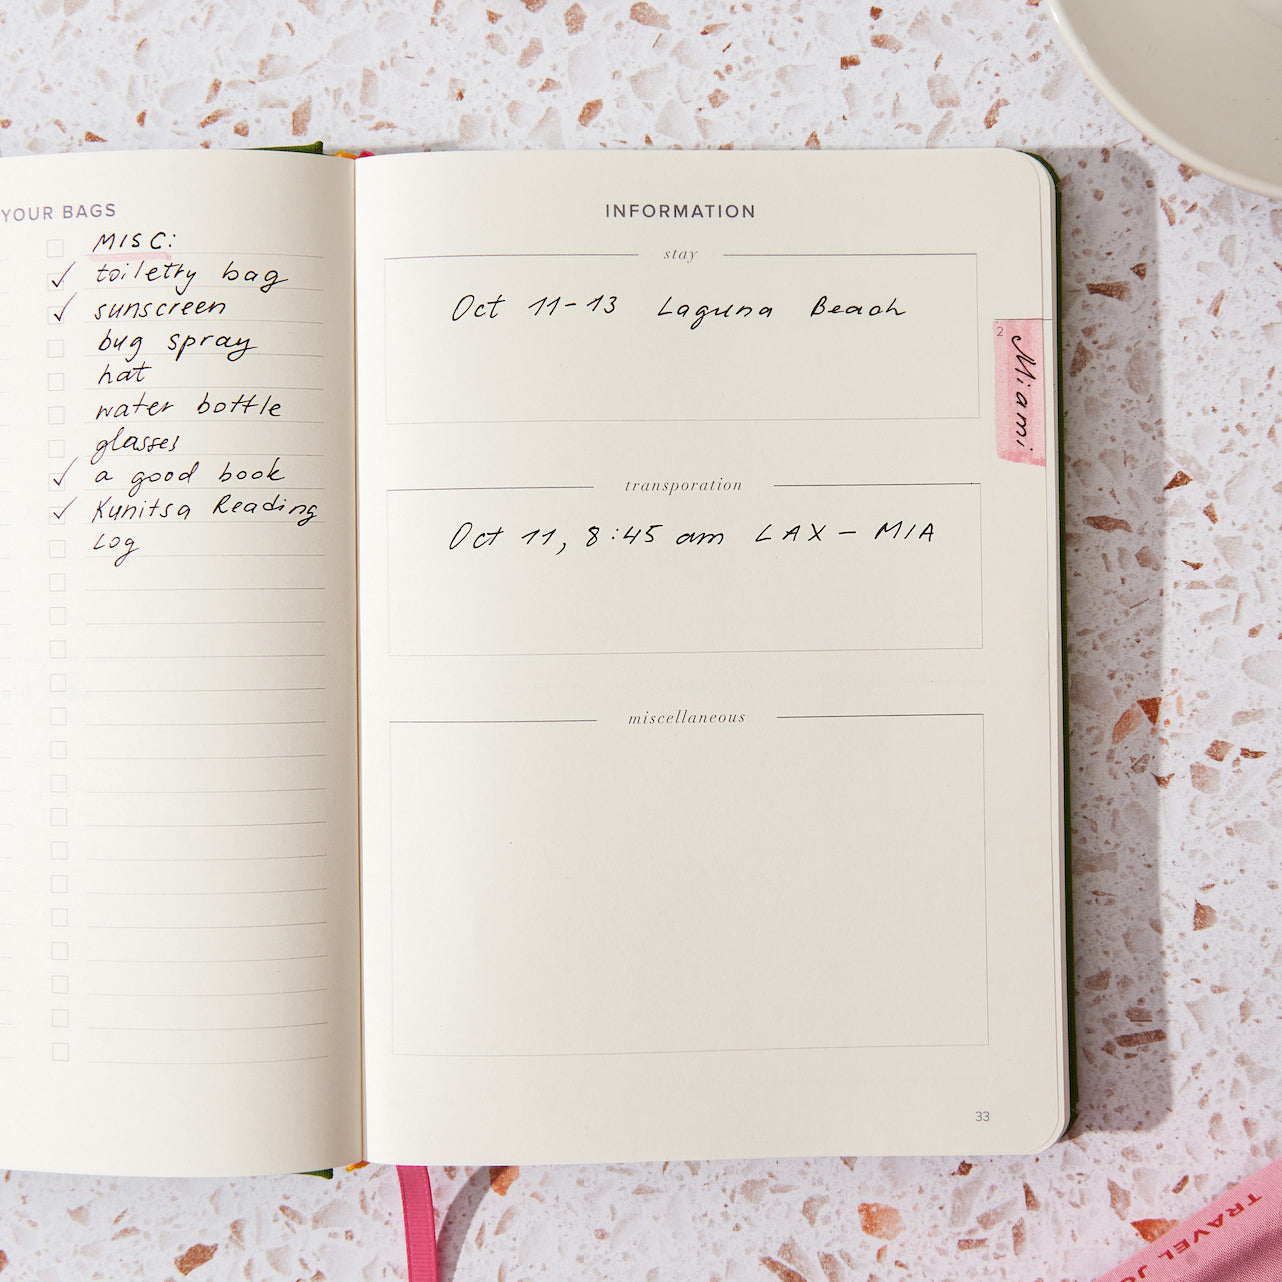 YOUR BAGS
MISC:
toiletry bag
sunscreen
bug spray
hat
water bottle
glasses
a good book
Kunitsa Reading
Log
INFORMATION
stay
Oct 11-13 Laguna Beach
2
Miami
transporation
Oct 11, 8:45 am LAX - MIA
miscellaneous
33
TRAVEL J